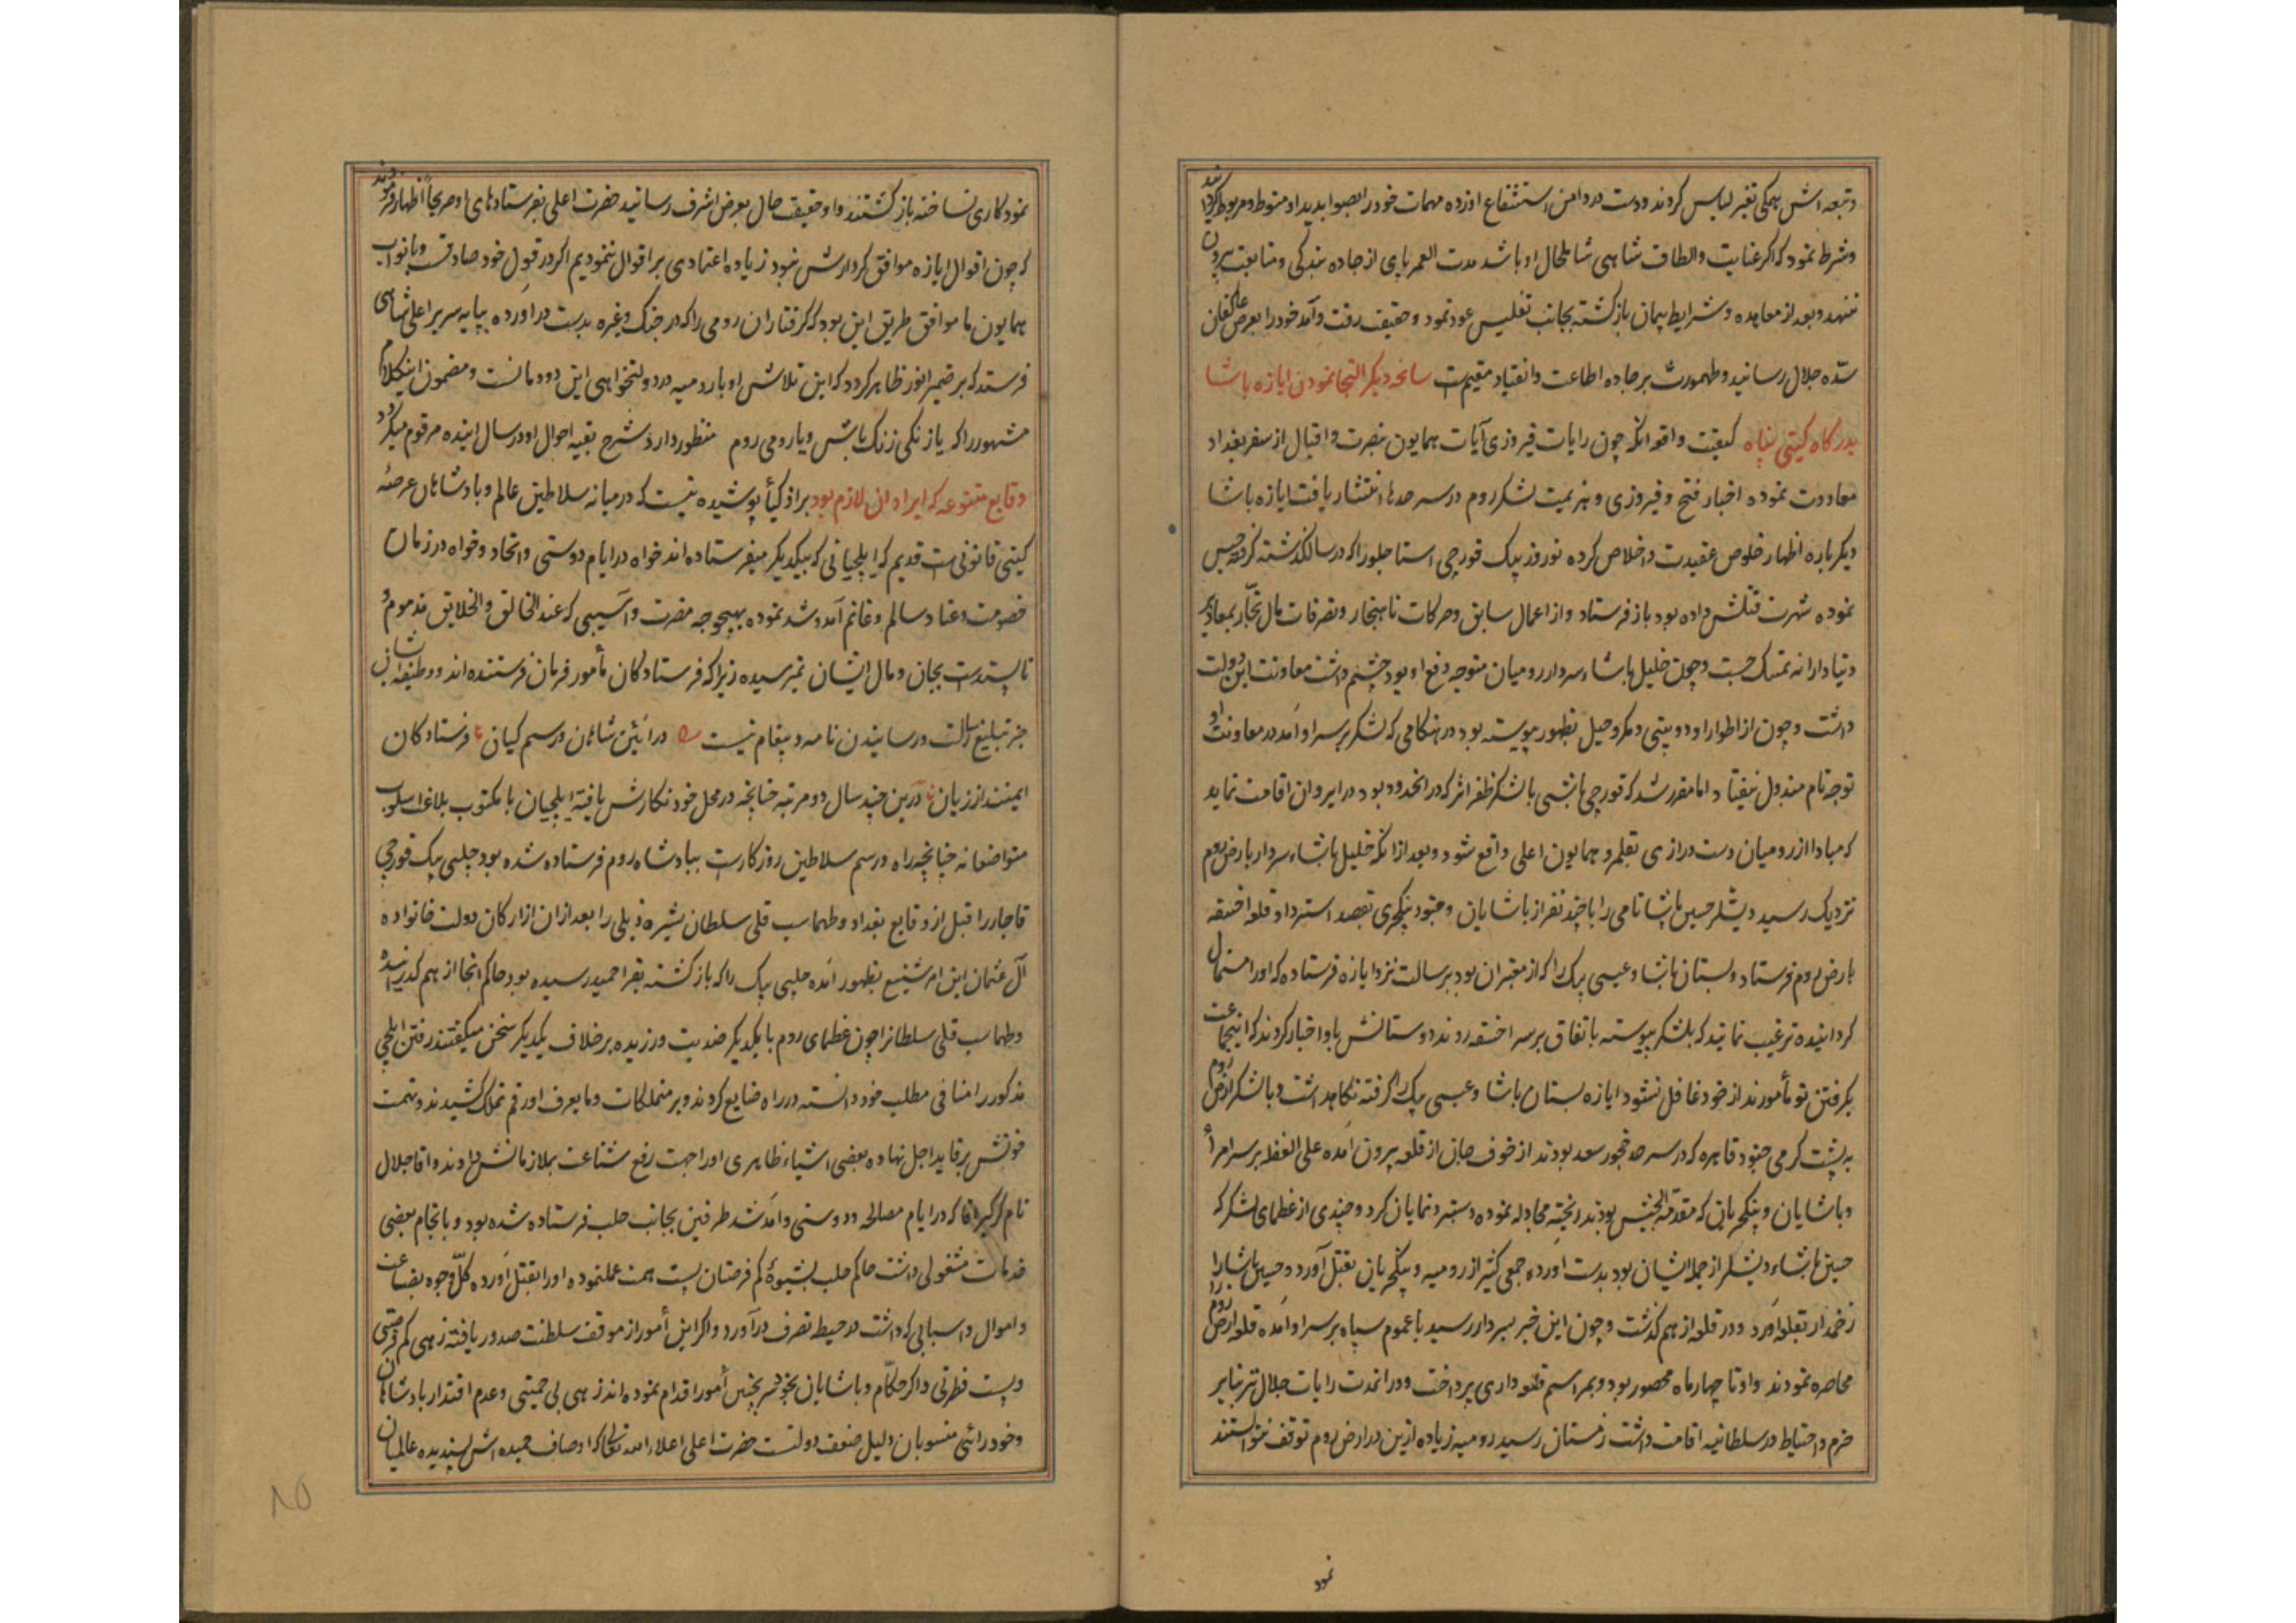 وتبعه اش همکی تغیر لباس کردند ودست در دامن استشفاع او زده مهمات خود را بصوابدید او منوط ومربوط کردانیدند
وشرط نمود که اکر عنایت والطاف شاهی شامل حال او باشد مدت العمر پای از جاده بندکی ومتابعت بیرون
ننهد وبعد از معاهده وشرایط پیمان بازکشته بجانب تفلیس عود نمود وحقیقت رفت وآمد خود را بعرض عاکفان
سده جلال رسانید وطهمورث بر جاده اطاعت وانقیاد مقیم است سانحه دیکر التجا نمودن ابازه پاشا
بدرکاه کیتی پناه کیفیت واقعه انکه چون رایات فیروزی آیات همایون بنصرت واقبال از سفر بغداد
معاودت نموده اخبار فتح وفیروزی وهزیمت لشکر روم در سرحدها انتشار یافت ابازه پاشا
دیکر باره اظهار خلوص عقیدت واخلاص کرده نوروز بیک قورچی استاجلو را که در سال کذشته کرفته حبس
نموده شهرت قتلش داده بود باز فرستاد واز اعمال سابق وحرکات ناهنجار وتصرفات مال تجار بمعاذیر
دنیادارانه تمسک جست وچون خلیل پاشاء سردار رومیان متوجه دفع او بود چشم داشت معاونت این دولت
داشت وچون از اطوار او دوبینی ومکر وحیل بظهور پیوسته بود در هنکامی که لشکر بر سر او آمد در معاونت او
توجه تام مبذول نیفتاد اما مقرر شد که قورچی باشی با لشکر ظفر اثر که در انحدود بود در ایروان اقامت نماید
که مبادا از رومیان دست درازی بقلمرو همایون اعلی واقع شود وبعد از انکه خلیل پاشاء سردار بارض روم
نزدیک رسید دیشلر حسین پاشا نامی را با چند نفر از پاشایان وجنود ینکچری بقصد استرداد قلعه اخسقه
بارض روم فرستاد وبستان پاشا وعیسی بیک را که از معتبران بود برسالت نزد ابازه فرستاده که او را استمال
کردانیده ترغیب نمایند که بلشکر پیوسته باتفاق بر سر اخسقه روند دوستانش باو اخبار کردند که اینجماعت
بکرفتن تو مأمورند از خود غافل نشود ابازه بستان پاشا وعیسی بیک را کرفته نکاهداشت وبا لشکر ارض روم
به پشت کرمی جنود قاهره که در سرحد خجور سعد بودند از خوف جان از قلعه بیرون آمده علی الغفله بر سر امرأ
وپاشایان وینکچریانی که مقدمة الجیش بودند ریخته مجادله نموده دستبرد نمایان کرد وچندی از عظمای لشکر که
حسین پاشاء دیشلر از جمله ایشان بود بدست اورده جمعی کثیر از رومیه وینکچریان بقتل آورد وحسین پاشا را
زخمدار بقلعه آورد ودر قلعه از هم کذشت وچون این خبر بسردار رسید با عموم سپاه بر سر او آمده قلعه ارض روم را
محاصره نمودند واو تا چهار ماه محصور بود وبمراسم قلعه داری پرداخت ودر انمدت رایات جلال نیز بنابر
حزم واحتیاط در سلطانیه اقامت داشت زمستان رسید رومیه زیاده ازین در ارض روم توقف نتوانستند
نمود
نمود کاری نساخته بازکشتند واو حقیقت حال بعرض اشرف رسانید حضرت اعلی بفرستادهای او صریحاً اظهار فرمودند
که چون اقوال ابازه موافق کردارش نبود زیاده اعتمادی بر اقوال ننمودیم اکر در قول خود صادقست وبا نواب
همایون ما موافق طریق این بود که کرفتاران رومی را که در جنک وغیره بدست در اورده بپایه سریر اعلی شاهی
فرستد که بر ضمیر انور ظاهر کردد که این تلاش او با رومیه در دولتخواهی این دودمانست ومضمون اینکلام
مشهور را که یا زنکی زنک باش ویا رومی روم منظور دارد شرح بقیه احوال او در سال اینده مرقوم میکردد
وقایع متنوعه که ایراد ان لازم بود بر اذکیأ پوشیده نیست که در میانه سلاطین عالم وپادشاهان عرصه
کیتی قانونیست قدیم که ایلچیانی که بیکدیکر میفرستاده اند خواه در ایام دوستی واتحاد وخواه در زمان
خصومت وعناد سالم وغانم آمد وشد نموده بهیچوجه مضرت وآسیبی که عند الخالق والخلایق مذموم و
ناپسندست بجان ومال ایشان نمیرسیده زیرا که فرستادکان مأمور فرمان فرستنده اند ووظیفه ایشان
جز تبلیغ رسالت ورسانیدن نامه وپیغام نیست در آئین شاهان ورسم کیان فرستادکان
ایمنند از زیان درین چند سال دو مرتبه چنانچه در محل خود نکارش یافته ایلچیان با مکتوب بلاغت اسلوب
متواضعانه چنانچه راه ورسم سلاطین روزکارست بپادشاه روم فرستاده شده بود چلبی بیک قورچی
قاجار را قبل از وقایع بغداد وطهماسب قلی سلطان شیره ذیلی را بعد از ان از ارکان دولت خانواده
آل عثمان این امر شنیع بظهور آمده چلبی بیک را که بازکشته بقرا حمید رسیده بود حاکم انجا از هم کذرانیده
وطهماسب قلی سلطانرا چون عظمای روم با یکدیکر ضدیت ورزیده برخلاف یکدیکر سخن میکفتند رفتن ایلچی
مذکور را منافی مطلب خود دانسته در راه ضایع کردند وبر متملکات وما یعرف او رقم تملک کشیدند وتهمت
خونش بر قاید اجل نهاده بعضی اشیاء ظاهری او را جهت رفع شناعت بملازمانش دادند واقا جلال
نام کرکیراقا که در ایام مصالحه ودوستی وآمد شد طرفین بجانب حلب فرستاده شده بود وبانجام بعضی
خدمات مشغولی داشت حاکم حلب بشیوه کم فرصتان پست همت عملنموده او را بقتل آورده کل وجوه بضاعت
واموال واسبابی که داشت در حیطه تصرف درآورد واکر این أمور از موقف سلطنت صدور یافته زهی کم فرصتی
وپست فطرتی واکر حکام وپاشایان بخودسر بچنین أمور اقدام نموده اند زهی بی حمیتی وعدم اقتدار پادشاهان
وخودرائی منسوبان دلیل ضعف دولتست حضرت اعلی اعلاء الله تعالی که اوصاف حمیده اش پسندیده عالمیان
۸۵